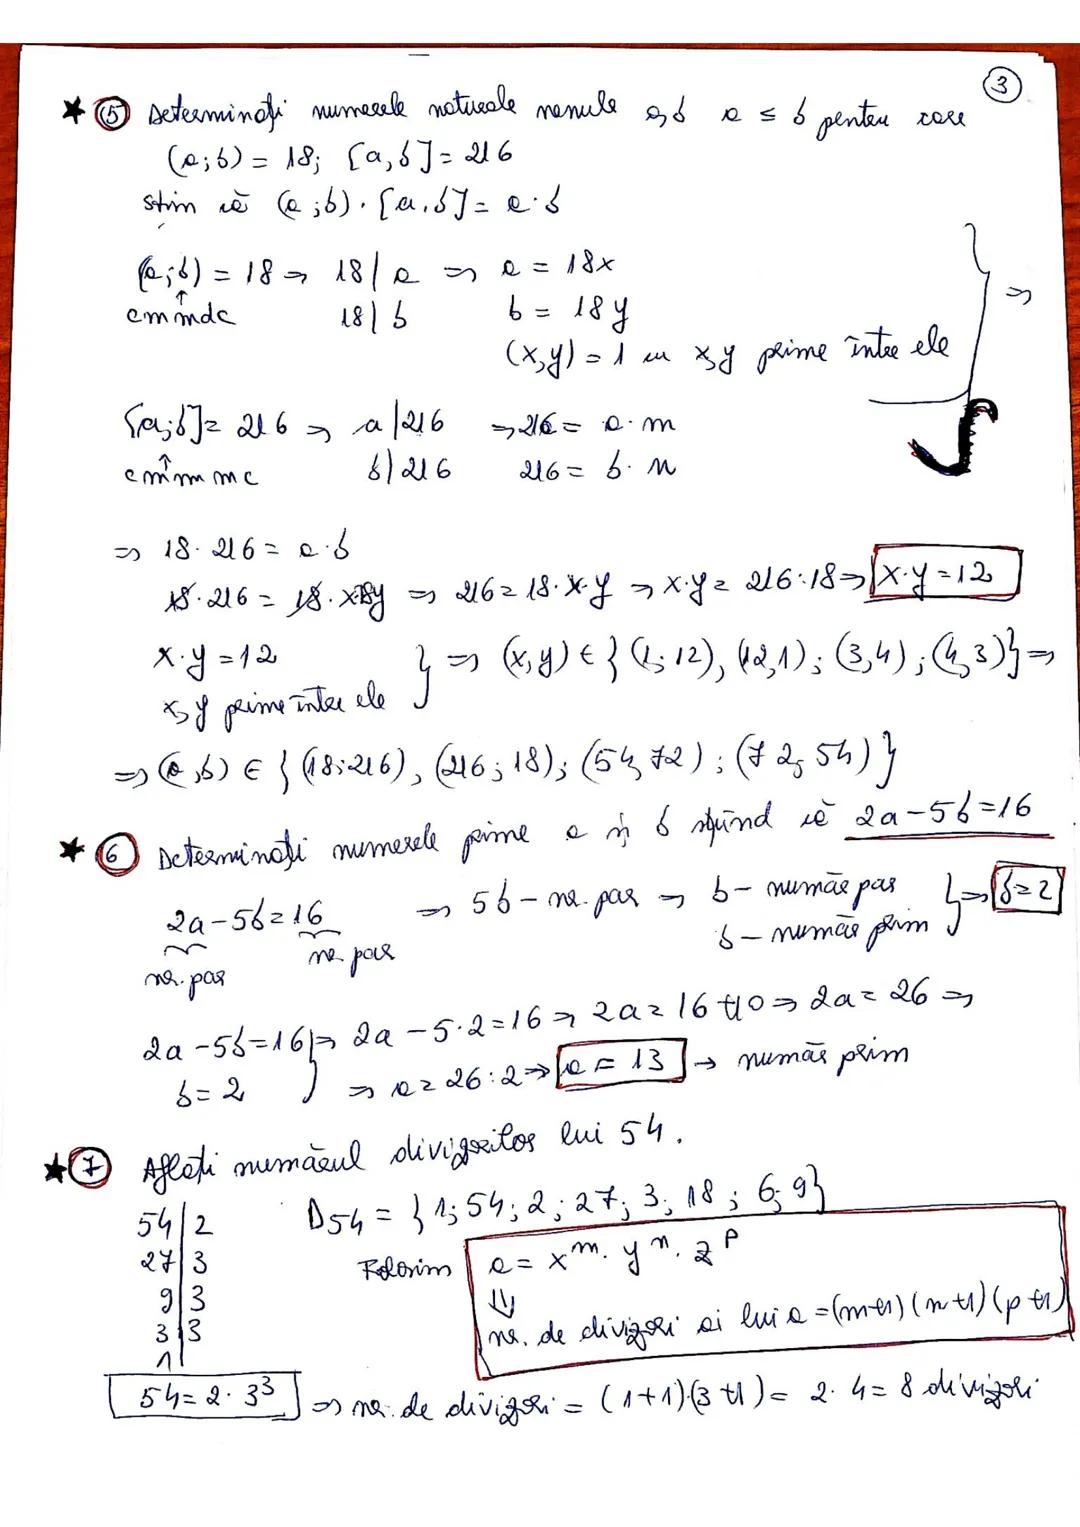 3
★ 5 Determinați numerele naturale nenule a,b a ≤ b pentru care
(a;b) = 18; [a,b] = 216
știm că (a;b) · [a,b] = a·b
(a;b) = 18 ⇒ 18 | a ⇒ a = 18x
cmmdc 18 | b b = 18y
(x,y) = 1 x,y prime între ele
} ⇒
[a;b] = 216 ⇒ a | 216 ⇒ 216 = a·m
cmmmc b | 216 216 = b·n
⇒ 18·216 = a·b
18·216 = 18·x·18y ⇒ 216 = 18·x·y ⇒ x·y = 216:18 ⇒ x·y = 12
x·y = 12
x,y prime între ele } ⇒ (x,y) ∈ {(1;12), (12,1); (3,4); (4,3)} ⇒
⇒ (a,b) ∈ {(18;216), (216;18); (54,72); (72,54)}
★ 6 Determinați numerele prime a și b știind că 2a-5b=16
2a-5b=16 ⇒ 5b - nr. par ⇒ b - număr par
nr. par nr. par b - număr prim } ⇒ b=2
2a-5b=16 ⇒ 2a-5·2=16 ⇒ 2a=16+10 ⇒ 2a=26 ⇒
b=2 } ⇒ a=26:2 ⇒ a=13 → număr prim
★ 7 Aflați numărul divizorilor lui 54.
54 | 2 D54 = {1;54;2;27;3;18;6;9}
27 | 3 Folosim a = x^m · y^n · z^p
9 | 3 ⇓
3 | 3 nr. de divizori ai lui a = (m+1)(n+1)(p+1)
1
54 = 2·3³ ⇒ nr. de divizori = (1+1)·(3+1) = 2·4 = 8 divizori